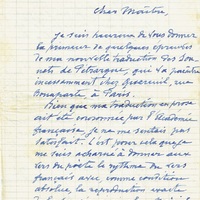 Cher Maître
Je suis heureux de vous donner
la primeur de quelques épreuves
de ma nouvelle traduction des Son-
nets de Pétrarque, qui va paraître
incessamment chez Messein, rue
Bonaparte à Paris.
Bien que ma traduction en prose
ait été couronnée par l'Académie
française, je ne me sentais pas
satisfait. C'est pour cela que je
me suis acharné à donner aux
vers du poète le système du vers
français avec comme condition
absolue, la reproduction exacte